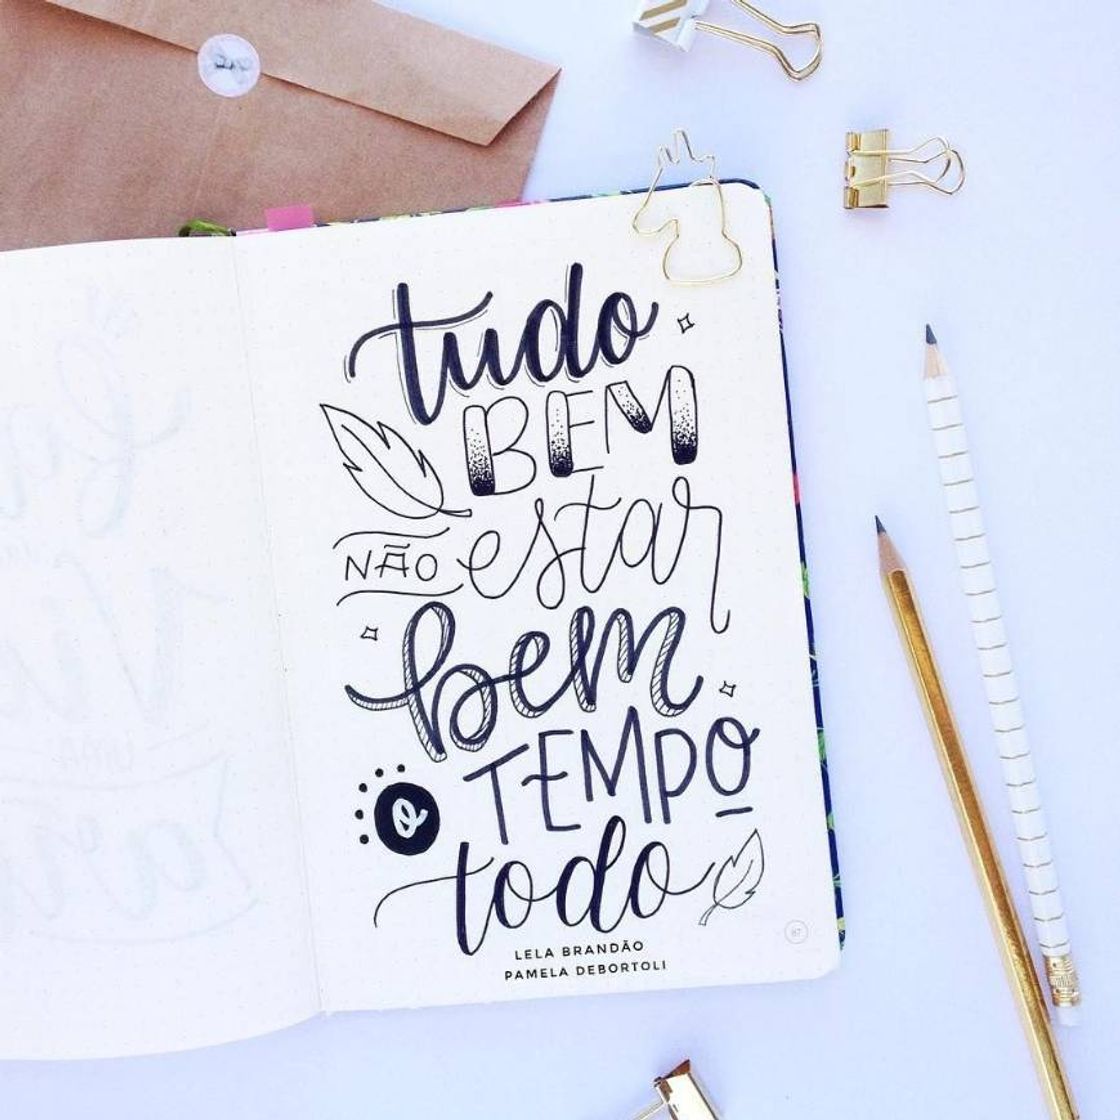 tudo
BEM
NÃO estar
bem
O TEMPO
todo
LELA BRANDÃO
PAMELA DEBORTOLI
87